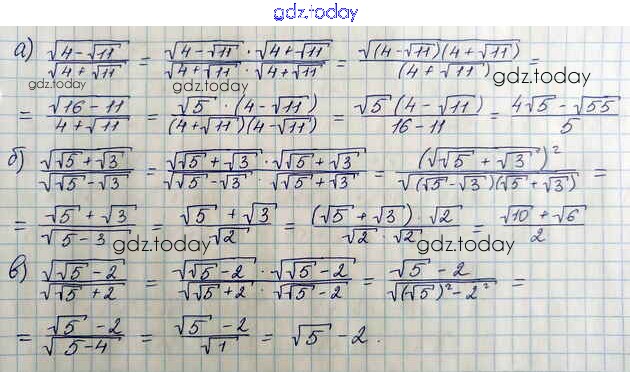 gdz.today
а) √(4-√11) / √(4+√11) = √(4-√11) · √(4+√11) / √(4+√11) · √(4+√11) = √((4-√11)(4+√11)) / (4+√11) =
gdz.today
gdz.today
= √(16-11) / 4+√11 = √5 · (4-√11) / (4+√11)(4-√11) = √5 (4-√11) / 16-11 = 4√5 - √55 / 5
б) √(√5+√3) / √(√5-√3) = √(√5+√3) · √(√5+√3) / √(√5-√3) · √(√5+√3) = (√(√5+√3))² / √((√5-√3)(√5+√3)) =
= √5+√3 / √(5-3) = √5+√3 / √2 = (√5+√3) · √2 / √2 · √2 = √10+√6 / 2
gdz.today
gdz.today
в) √(√5-2) / √(√5+2) = √(√5-2) · √(√5-2) / √(√5+2) · √(√5-2) = √5-2 / √((√5)²-2²) =
= √5-2 / √(5-4) = √5-2 / √1 = √5-2.